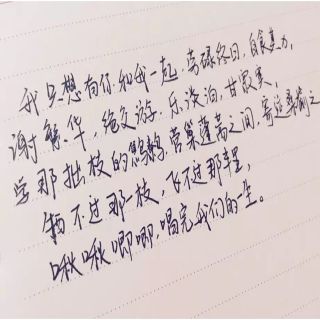 我只想有你,和我一起,劳碌终日,自食其力,
谢繁华,绝交游,乐淡泊,甘寂寞,
学那拙枝的鹪鹩,营巢蓬蒿之间,寄迹桑榆之
栖不过那一枝,飞不过那半里,
啾啾唧唧,唱完我们的一生。